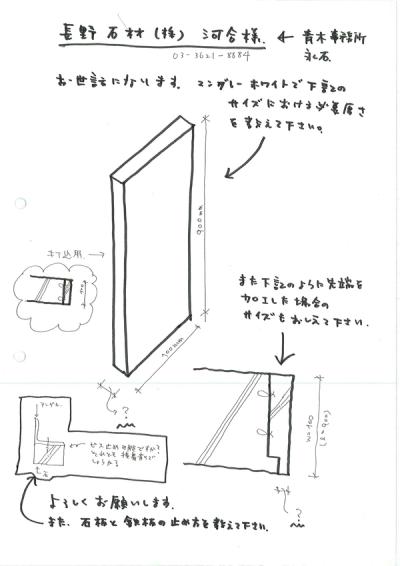 長野石材(株) 河合様. ← 青木事務所
03-3621-8684
お世話になります。 マングレーホワイトで下記の
サイズにおける必要厚さ
を教えて下さい。
900mm
100mm
?
また下記のように先端を
加工した場合の
サイズもおしえて下さい.
100mm
(l=900)
?
ビス止め可能ですか?
それとも接着剤で
しょうか?
よろしくお願いします.
また、石板と鉄板の止め方を教えて下さい.